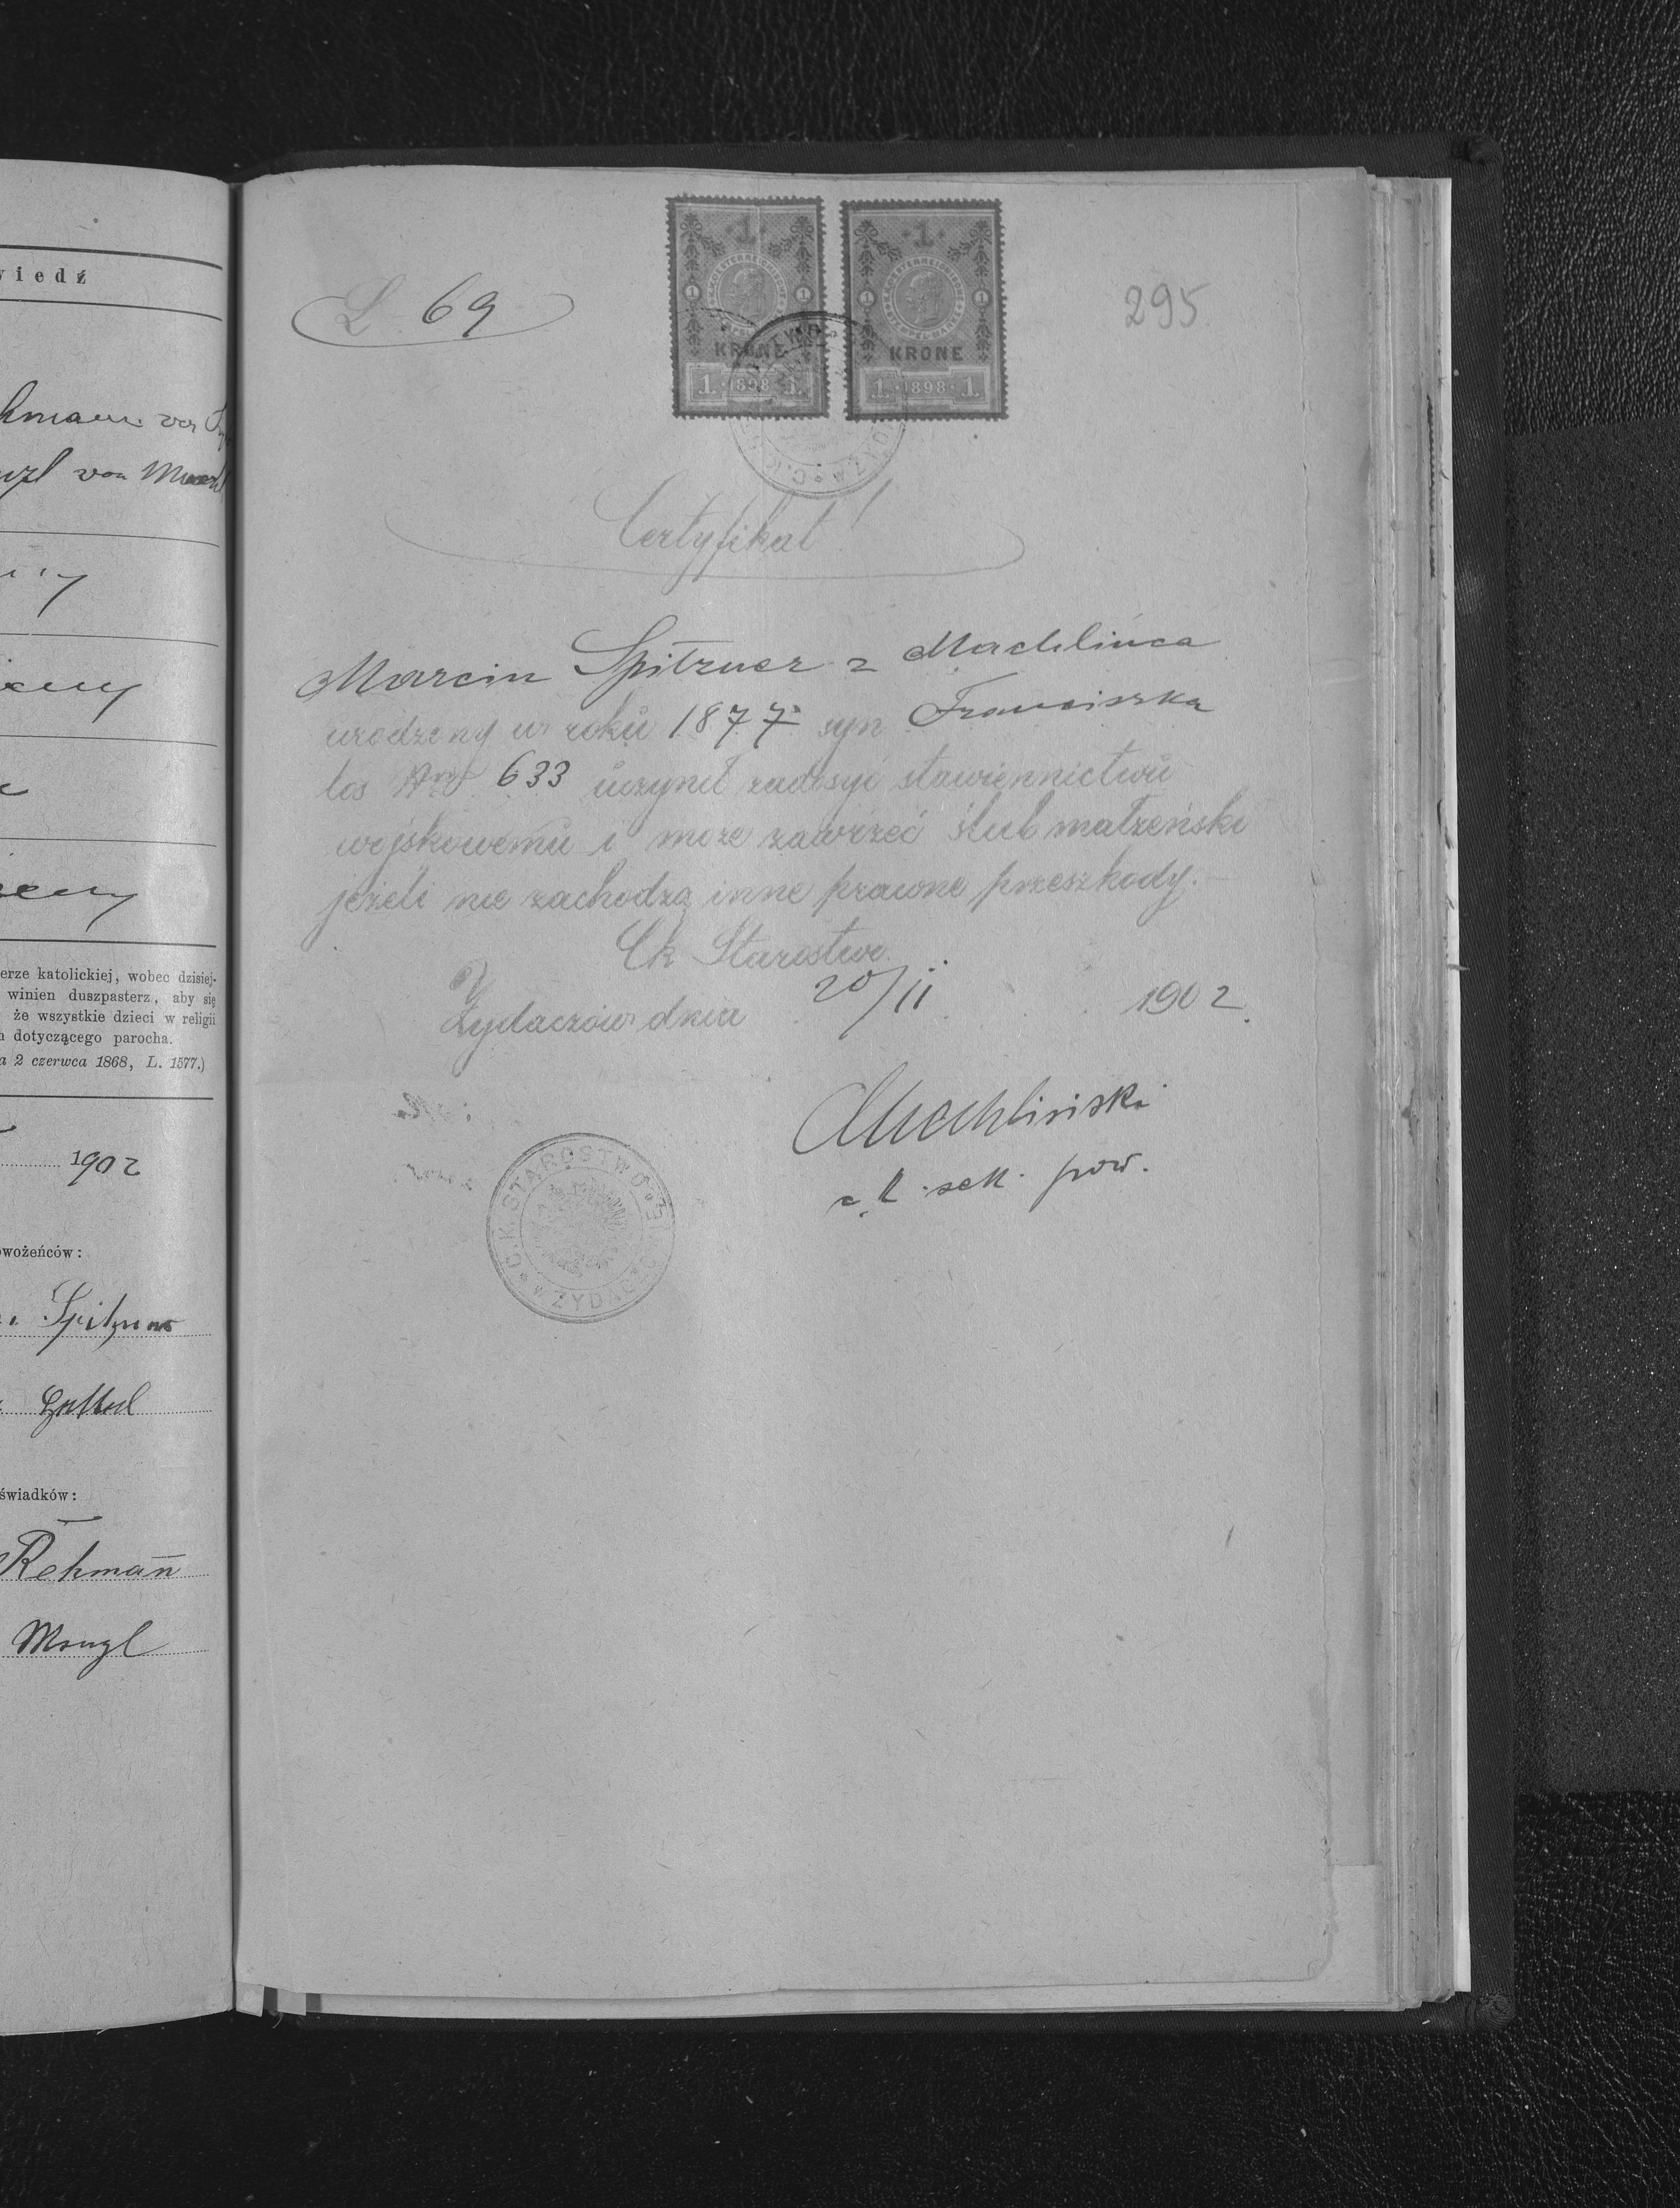 wiedź
1902
erze katolickiej, wobec dzisiej-
winien duszpasterz, aby się
że wszystkie dzieci w religii
dotyczącego parocha.
a 2 czerwca 1868, L. 1577.)
1902
owożeńców:
Spitzner
świadków:
Rehmann
Manzl
L 69
1
KRONE
1. 1898 1.
1
KRONE
1. 1898 1.
295
Certyfikat!
Marcin Spitzner z Machlińca
urodzony w roku 1877 syn Franciszka
los Nro 633 uczynił zadosyć stawiennictwu
wojskowemu i może zawrzeć ślub małżeński
jeżeli nie zachodzą inne prawne przeszkody.
Ck Starostwo
Żydaczów dnia 20/II 1902.
c. k. sek. pow.
C.K. STAROSTWO